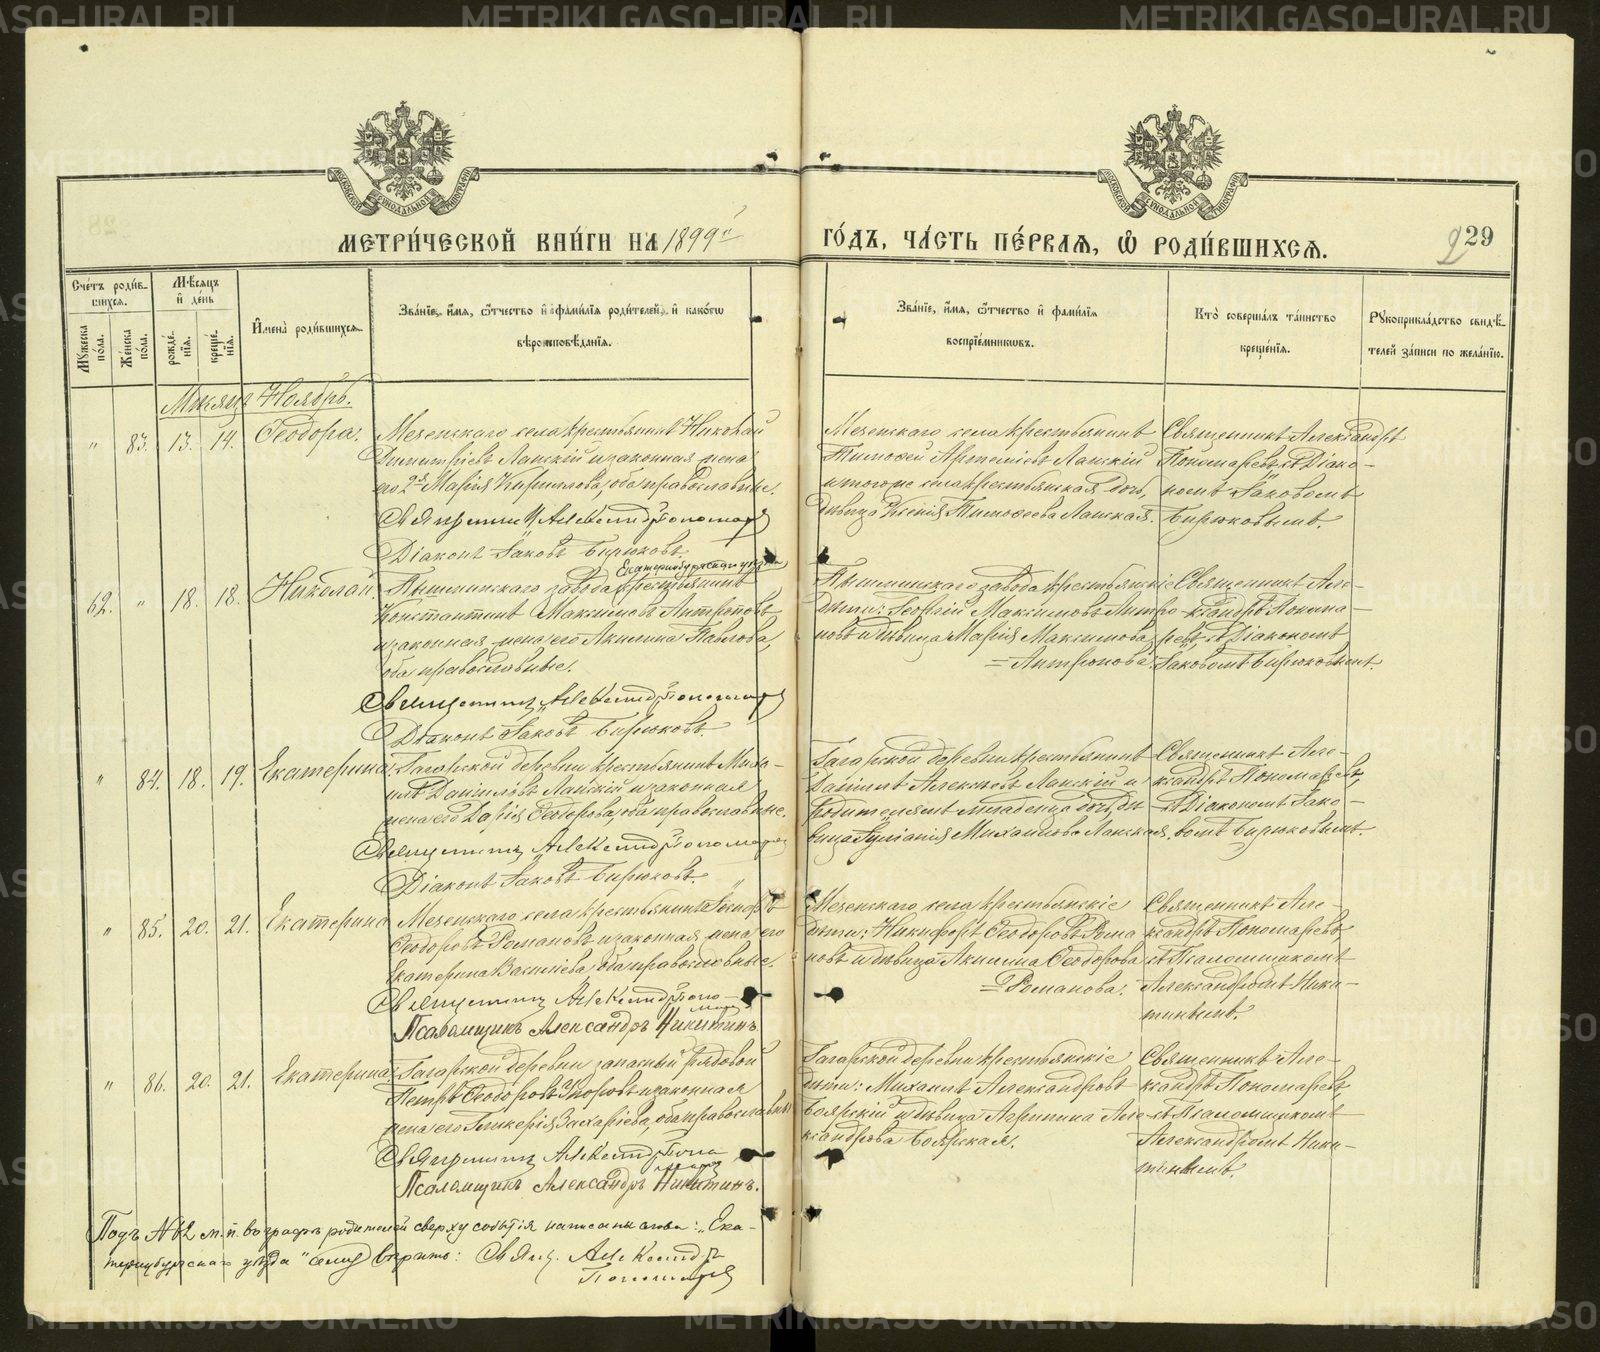 METRIKI.GASO-URAL.RU
МЕТРИ́ЧЕСКОЙ КНИ́ГИ НА 1899й ГО́ДЪ, ЧА́СТЬ ПЕ́РВАЯ, Ѡ РОДИ́ВШИХСЯ.
29
Сче́тъ роди́в-
шихся.
Мѣ́сяцъ
и҆ де́нь
Мꙋ́жеска по́ла.
Же́нска по́ла.
рожде́-
нїя.
креще́-
нїя.
И҆мена̀ роди́вшихся.
Зва́нїе, и҆́мя, ѻ҆́тчество и҆ фами́лїя роди́телей, и҆ како́гѡ
вѣроисповѣ́данїя.
Зва́нїе, и҆́мя, ѻ҆́тчество и҆ фами́лїя
воспрїе́мникѡвъ.
Кто̀ соверша́лъ та́инство
креще́нїя.
Рꙋкоприкла́дство свидѣ́-
телей за́писи по жела́нїю.
Мѣсяцъ Ноябрь.
" 83. 13. 14. Ѳеодора.
Мезенскаго села крестьянинъ Николай
Димитріевъ Ланскій и законная жена
его 2я Марія Кириллова, оба православные.
Священникъ Александръ Пономаревъ
Діаконъ Іаковъ Бирюковъ.
Мезенскаго села крестьянинъ
Тимоѳей Артеміевъ Ланскій
и того же села крестьянская дочь,
дѣвица Ксенія Тимоѳеева Ланская.
Священникъ Александръ
Пономаревъ съ Діако-
номъ Іаковомъ
Бирюковымъ.
62. " 18. 18. Николай.
Екатеринбургскаго уѣзда
Пышминскаго завода крестьянинъ
Константинъ Максимовъ Антроповъ
и законная жена его Акилина Павлова,
оба православные.
Священникъ Александръ Пономаревъ
Діаконъ Іаковъ Бирюковъ.
Пышминскаго завода крестьянскіе
дѣти: Георгій Максимовъ Антро-
повъ и дѣвица Марія Максимова
= Антропова.
Священникъ Але-
ксандръ Понома-
ревъ съ Діакономъ
Іаковомъ Бирюковымъ.
" 84. 18. 19. Екатерина.
Гагарской деревни крестьянинъ Миха-
илъ Даниловъ Ланскій и законная
жена его Дарія Ѳеодорова, оба православные.
Священникъ Александръ Пономаревъ
Діаконъ Іаковъ Бирюковъ.
Гагарской деревни крестьянинъ
Даніилъ Алексѣевъ Ланскій и
родителямъ младенца дочь, дѣ-
вица Іуліанія Михаилова Ланская.
Священникъ Але-
ксандръ Пономаревъ,
съ Діакономъ Іако-
вомъ Бирюковымъ.
" 85. 20. 21. Екатерина
Мезенскаго села крестьянинъ
Ѳеодоровъ Романовъ и законная жена его
Екатерина Василіева, оба православные.
Священникъ Александръ Поно-
маревъ
Псаломщикъ Александръ Никитинъ.
Мезенскаго села крестьянскіе
дѣти: Никифоръ Ѳеодоровъ Рома
новъ и дѣвица Акилина Ѳеодорова
= Романова.
Священникъ Але-
ксандръ Пономаревъ,
съ Псаломщикомъ
Александромъ Ники-
тинымъ.
" 86. 20. 21. Екатерина.
Гагарской деревни запасный рядовой
Петръ Ѳеодоровъ и законная
жена его Гликерія Захаріева, оба православные
Священникъ Александръ Поно
маревъ
Псаломщикъ Александръ Никитинъ.
Гагарской деревни крестьянскіе
дѣти: Михаилъ Александровъ
Боярскій и дѣвица Агрипина Але
ксандрова Боярская.
Священникъ Але-
ксандръ Пономаревъ,
съ Псаломщикомъ
Александромъ Ники-
тинымъ.
Подъ №62 м. п. въ графѣ родителей сверху событія написаны слова: "Ека-
теринбургскаго уѣзда" сему вѣрить: Свящ. Александръ
Пономаревъ